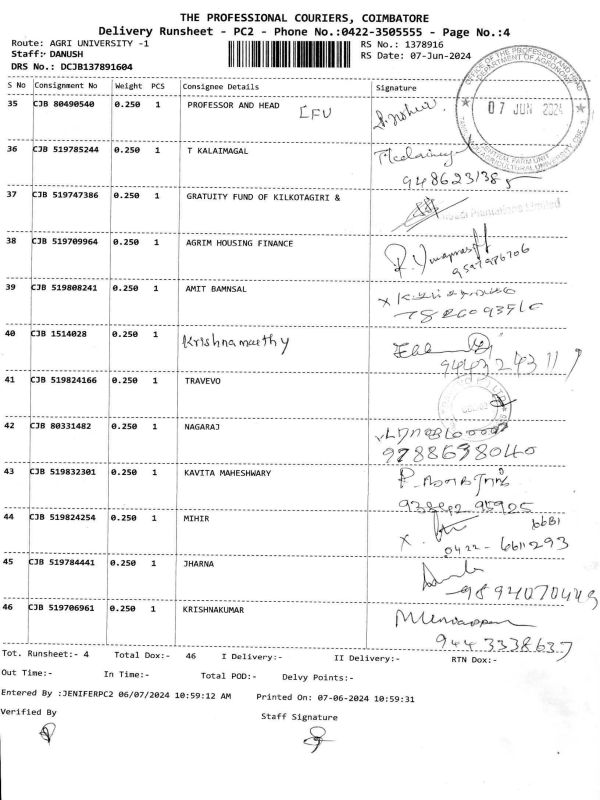 THE PROFESSIONAL COURIERS, COIMBATORE
Delivery Runsheet - PC2 - Phone No.:0422-3505555 - Page No.:4
Route: AGRI UNIVERSITY -1 RS No.: 1378916
Staff:- DANUSH RS Date: 07-Jun-2024
DRS No.: DCJB137891604
S No Consignment No Weight PCS Consignee Details Signature
35 CJB 80490540 0.250 1 PROFESSOR AND HEAD CFU
07 JUN 2024
36 CJB 519785244 0.250 1 T KALAIMAGAL
9486231385
37 CJB 519747386 0.250 1 GRATUITY FUND OF KILKOTAGIRI &
38 CJB 519709964 0.250 1 AGRIM HOUSING FINANCE
39 CJB 519808241 0.250 1 AMIT BAMNSAL
40 CJB 1514028 Krishnamurthy
41 CJB 519824166 0.250 1 TRAVEVO
42 CJB 80331482 0.250 1 NAGARAJ
9788638040
43 CJB 519832301 0.250 1 KAVITA MAHESHWARY
44 CJB 519824254 0.250 1 MIHIR
0422-6611293
45 CJB 519784441 0.250 1 JHARNA
46 CJB 519706961 0.250 1 KRISHNAKUMAR
9443338637
Tot. Runsheet:- 4 Total Dox:- 46 I Delivery:- II Delivery:- RTN Dox:-
Out Time:- In Time:- Total POD:- Delvy Points:-
Entered By :JENIFERPC2 06/07/2024 10:59:12 AM Printed On: 07-06-2024 10:59:31
Verified By Staff Signature